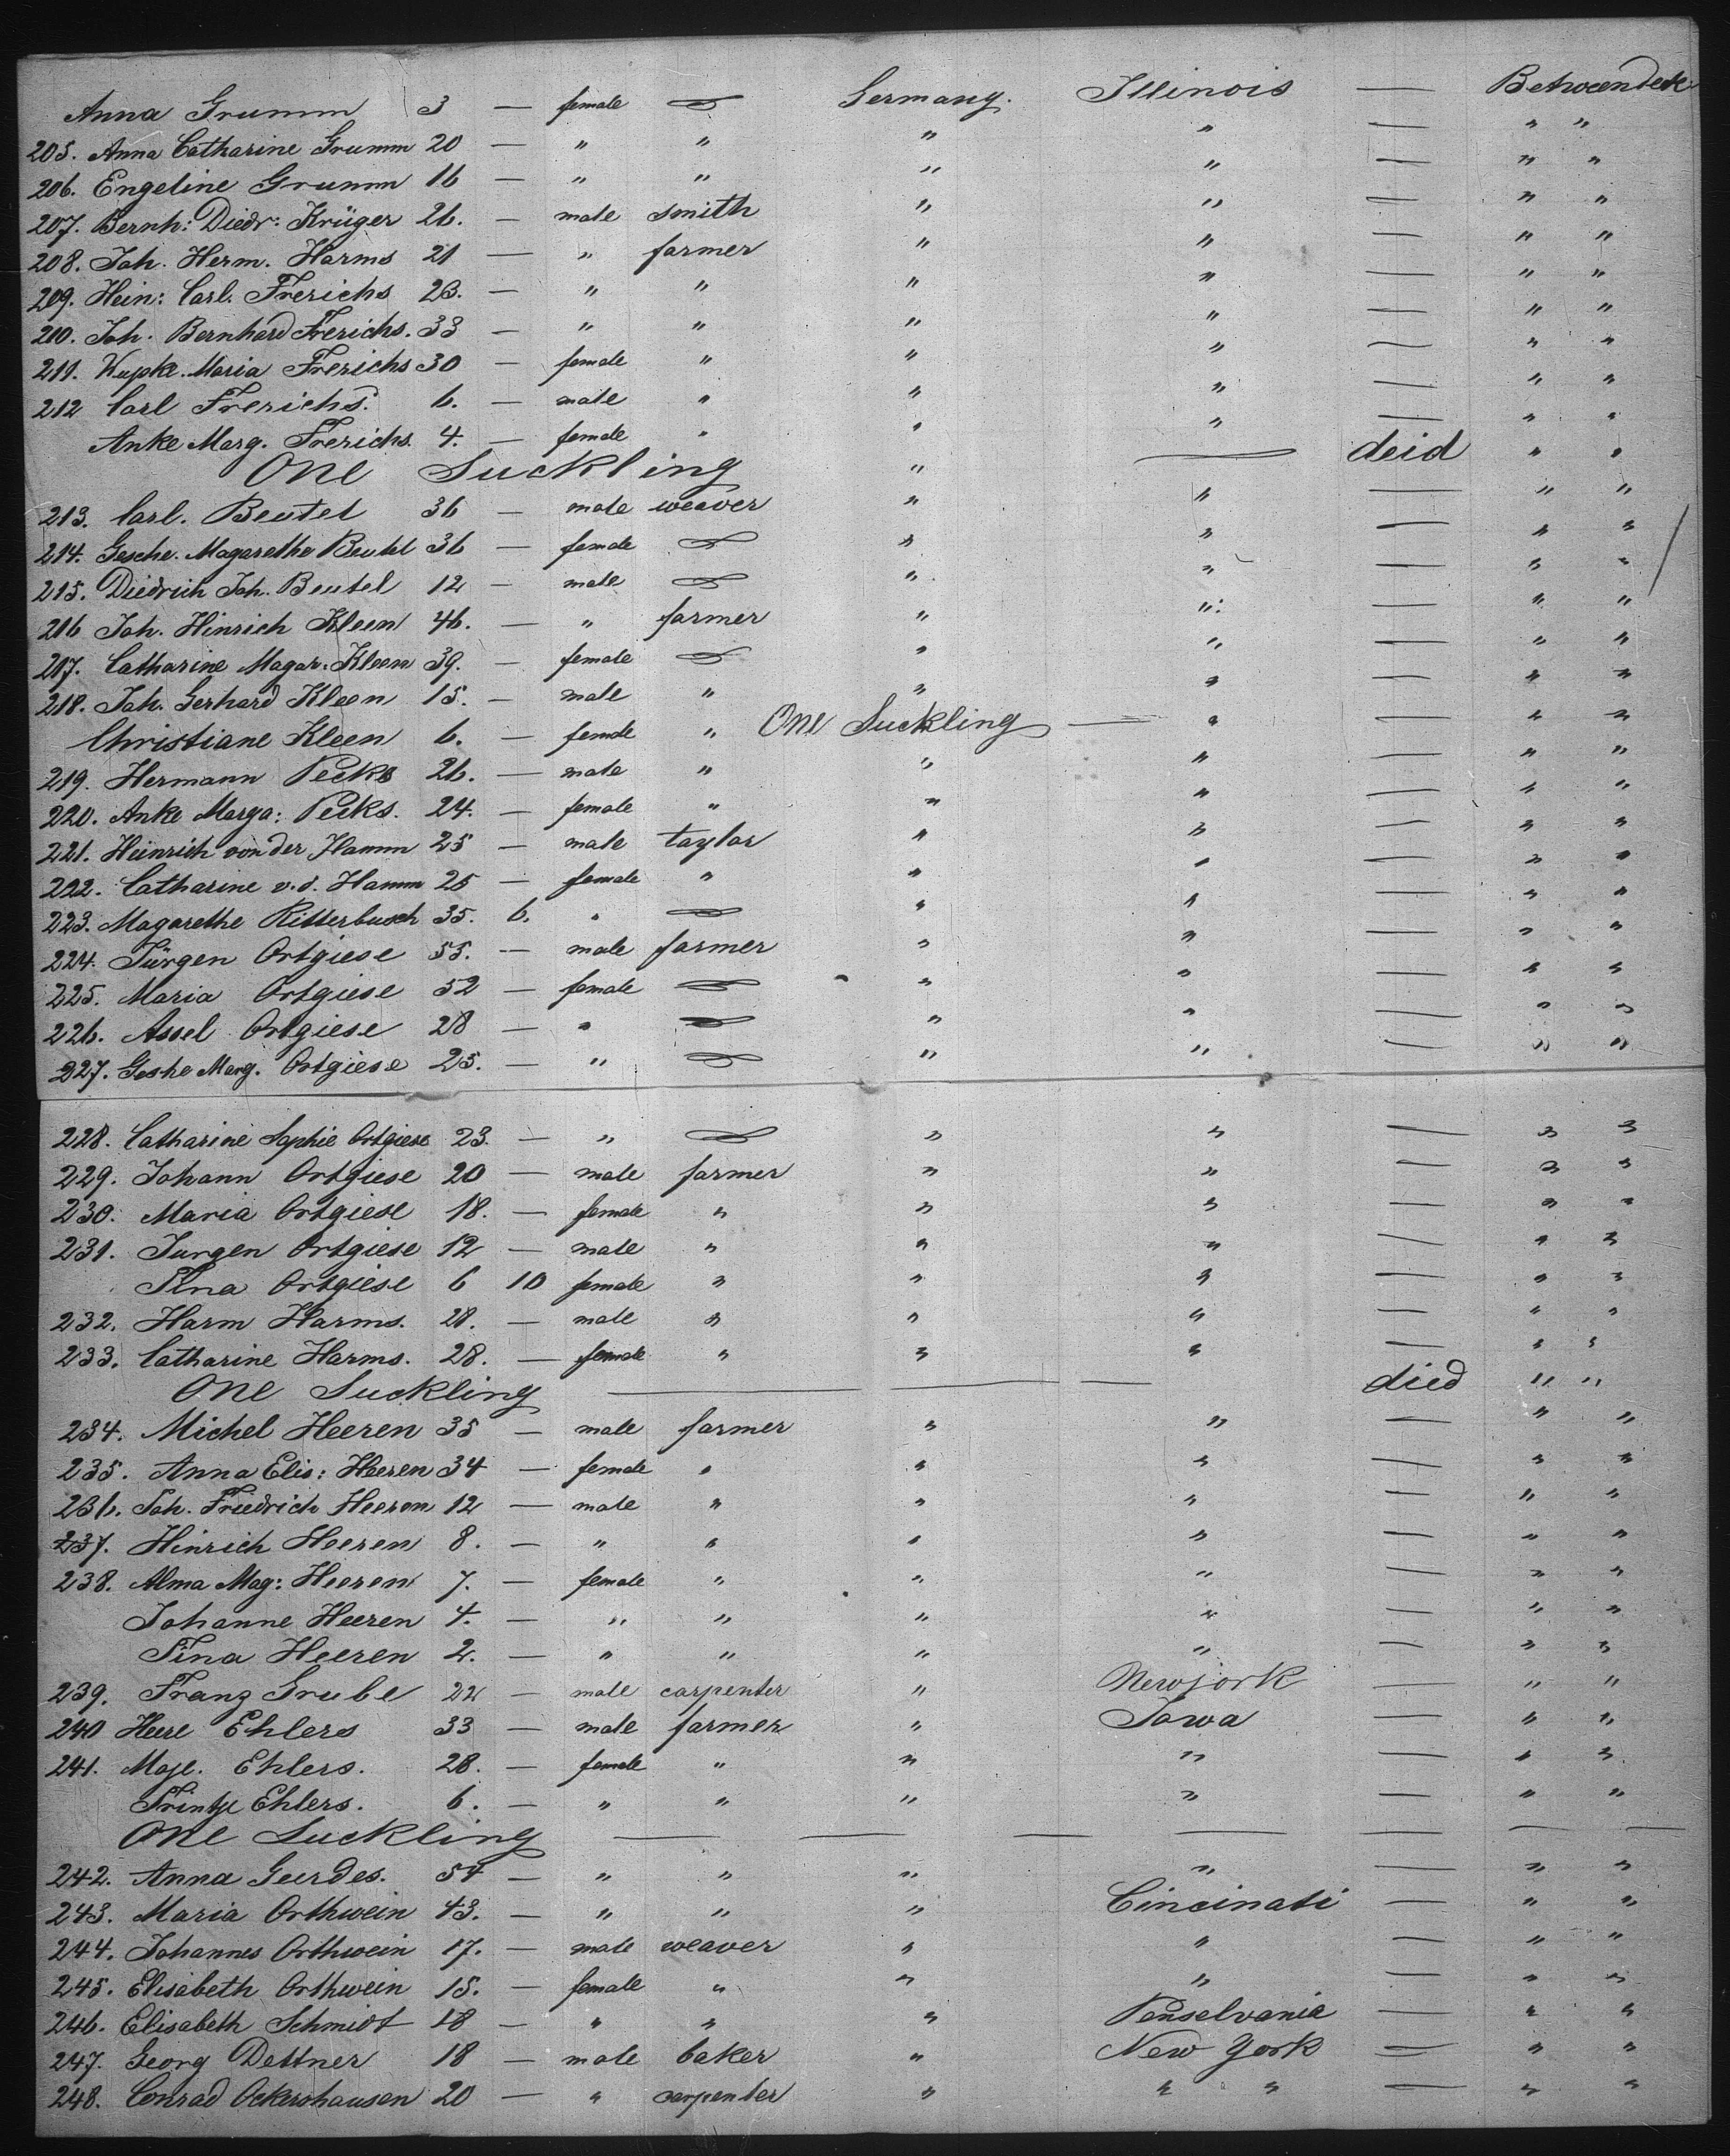 Anna Grumm 3 — female — Germany. Illinois — Betweendeck
205. Anna Catharine Grumm 20 — " " " " — " "
206. Engeline Grumm 16 — " " " " — " "
207. Bernh: Diedr: Krüger 26. — male smith " " — " "
208. Joh. Herm. Harms 21 — " farmer " " — " "
209. Hein: Carl. Frerichs 23. — " " " " — " "
210. Joh. Bernhard Frerichs. 33 — " " " " — " "
211. Maria Frerichs 30 — female " " " — " "
212 Carl Frerichs. 6. — male " " " — " "
Anke Marg. Frerichs. 4. — female " " " — " "
One Suckling " — deid " "
213. Carl. Beutel 36 — male weaver " " — " "
214. Gesche. Magarethe Beutel 36 — female — " " — " "
215. Diedrich Joh. Beutel 12 — male — " " — " "
216 Joh. Hinrich Kleen 46. — " farmer " " — " "
217. Catharine Magar: Kleen 39. — female — " " — " "
218. Joh. Gerhard Kleen 15. — male " " " — " "
Christiane Kleen 6. — female " One Suckling — " — " "
219. Hermann Pecks 26. — male " " " — " "
220. Anke Marga: Pecks. 24. — female " " " — " "
221. Heinrich von der Hamm 25 — male taylor " " — " "
222. Catharine v. d. Hamm 25 — female " " " — " "
223. Magarethe Ritterbusch 35. 6. " — " " — " "
224. Jürgen Ortgiese 55. — male farmer " " — " "
225. Maria Ortgiese 52 — female — " " — " "
226. Assel Ortgiese 28 — " — " " — " "
227. Geshe Marg. Ortgiese 25. — " — " " — " "
228. Catharine Sophie Ortgiese 23. — " — " " — " "
229. Johann Ortgiese 20 — male farmer " " — " "
230. Maria Ortgiese 18. — female " " " — " "
231. Jurgen Ortgiese 12 — male " " " — " "
Tina Ortgiese 6 10 female " " " — " "
232. Harm Harms. 28. — male " " " — " "
233. Catharine Harms. 28. — female " " " — " "
One Suckling — — — died " "
234. Michel Heeren 35 — male farmer " " — " "
235. Anna Elis: Heeren 34 — female " " " — " "
236. Joh. Friedrich Heeren 12 — male " " " — " "
237. Hinrich Heeren 8. — " " " " — " "
238. Alma Mag: Heeren 7. — female " " " — " "
Johanne Heeren 4. — " " " " — " "
Tina Heeren 2. — " " " " — " "
239. Franz Grube 22 — male carpenter " Newjork — " "
240 Heere Ehlers 33 — male farmer " Iowa — " "
241. Maje. Ehlers. 28. — female " " " — " "
Trintje Ehlers. 6. — " " " " — " "
One Suckling — — — — — — —
242. Anna Geerdes. 54 — " " " " — " "
243. Maria Orthwein 43. — " " " Cincinati — " "
244. Johannes Orthwein 17. — male weaver " " — " "
245. Elisabeth Orthwein 15. — female " " " — " "
246. Elisabeth Schmidt 18 — " " " Penselvania — " "
247. Georg Dettner 18 — male baker " New York — " "
248. Conrad Ockershausen 20 — " carpenter " " " — " "